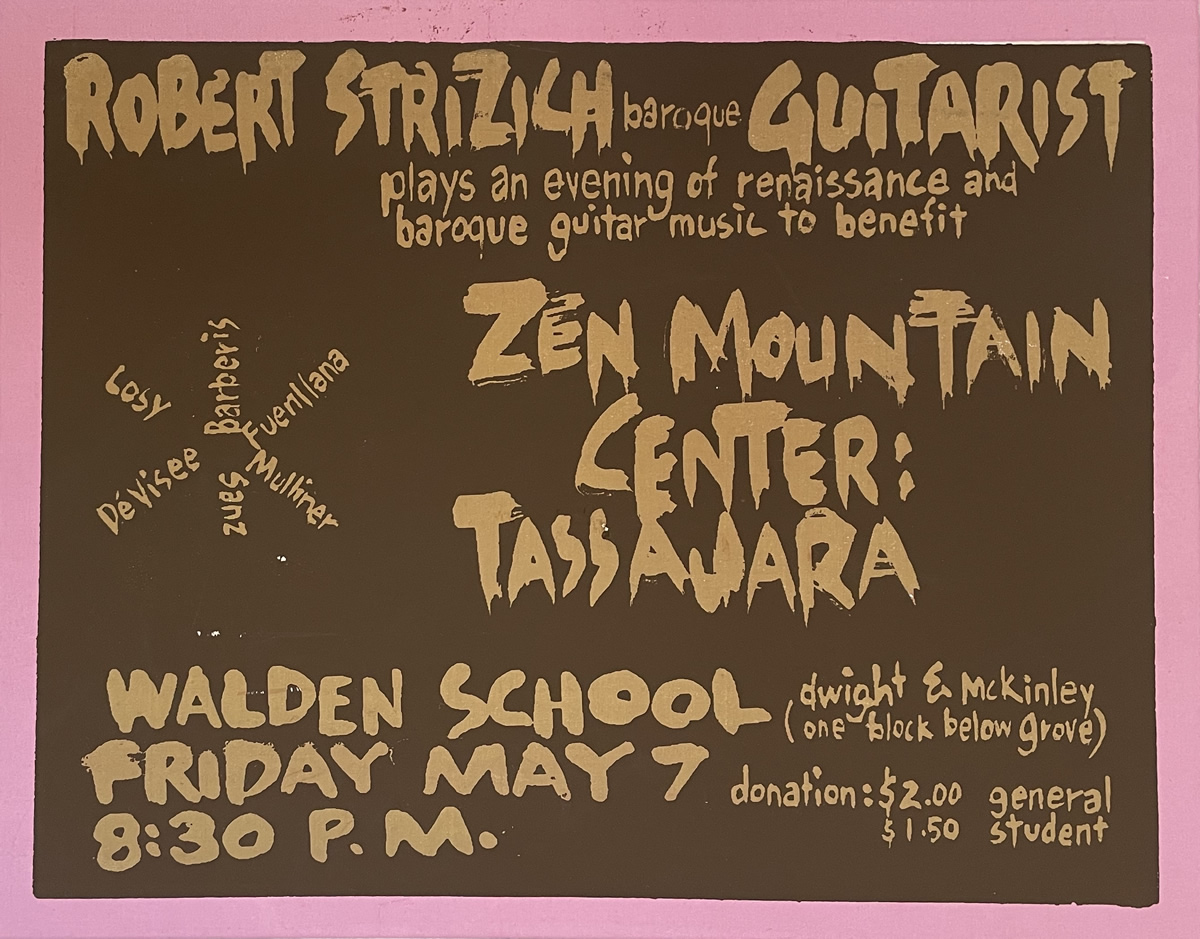 ROBERT STRIZICH baroque GUITARIST
plays an evening of renaissance and
baroque guitar music to benefit
ZEN MOUNTAIN
CENTER:
TASSAJARA
Losy
Barberis
Fuenllana
DéVisee
Sanz
Mulliner
WALDEN SCHOOL
dwight & McKinley
(one block below grove)
FRIDAY MAY 7
8:30 P.M.
donation: $2.00 general
$1.50 student